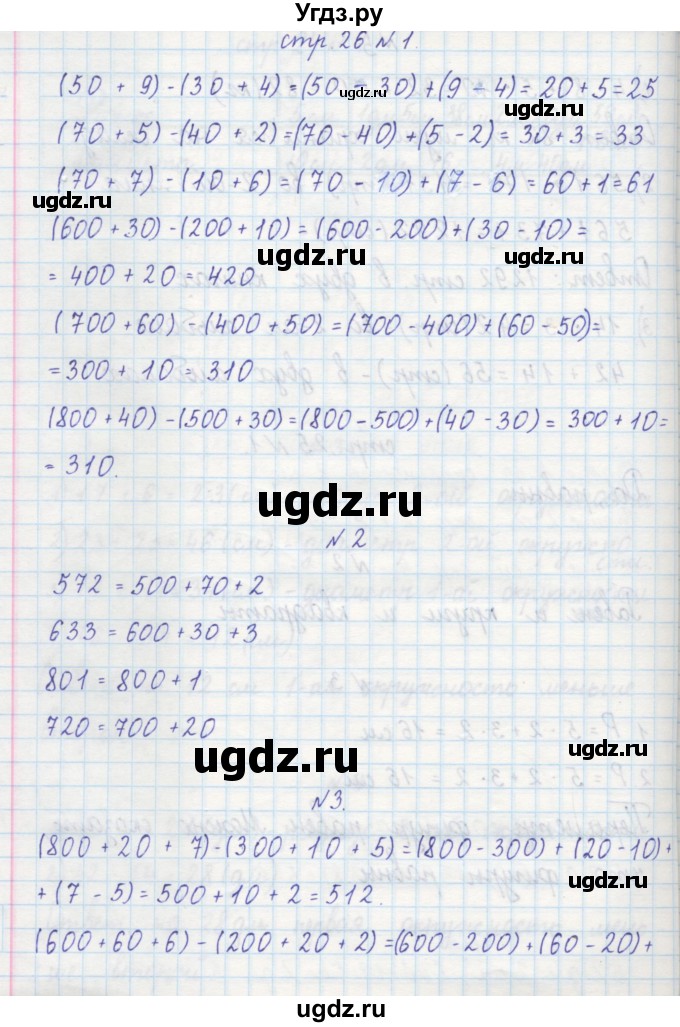 Угдз.ру
стр. 26 N 1.
(50 + 9) - (30 + 4) = (50 - 30) + (9 - 4) = 20 + 5 = 25
www.ugdz.ru
www.ugdz.ru
(70 + 5) - (40 + 2) = (70 - 40) + (5 - 2) = 30 + 3 = 33
(70 + 7) - (10 + 6) = (70 - 10) + (7 - 6) = 60 + 1 = 61
www.ugdz.ru
(600 + 30) - (200 + 10) = (600 - 200) + (30 - 10) =
ugdz.ru
= 400 + 20 = 420
(700 + 60) - (400 + 50) = (700 - 400) + (60 - 50) =
= 300 + 10 = 310
(800 + 40) - (500 + 30) = (800 - 500) + (40 - 30) = 300 + 10 =
= 310.
ugdz.ru
N 2
572 = 500 + 70 + 2
www.ugdz.ru
633 = 600 + 30 + 3
801 = 800 + 1
720 = 700 + 20
www.ugdz.ru
ugdz.ru
N 3.
(800 + 20 + 7) - (300 + 10 + 5) = (800 - 300) + (20 - 10) +
www.ugdz.ru
+ (7 - 5) = 500 + 10 + 2 = 512.
(600 + 60 + 6) - (200 + 20 + 2) = (600 - 200) + (60 - 20) +
ugdz.ru